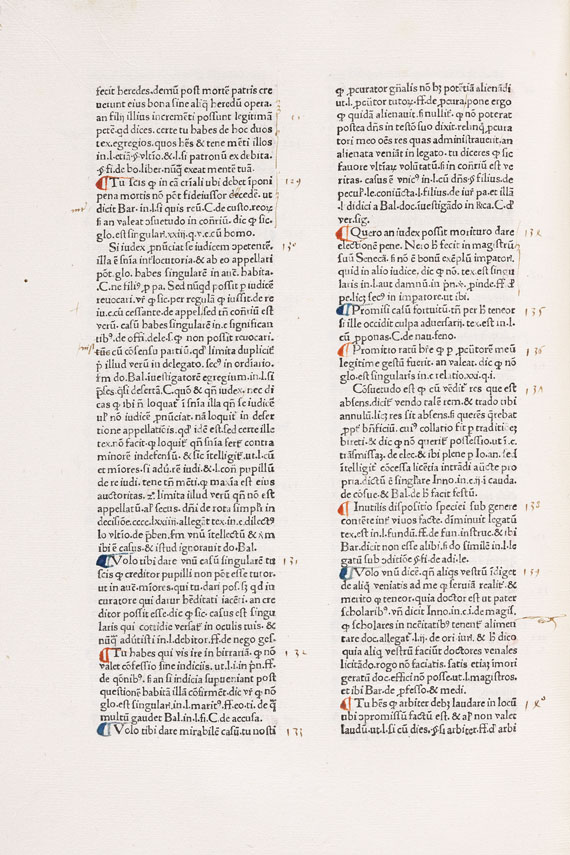 fecit heredes.demũ post mortẽ patris cre
uerunt eius bona sine aliq̃ heredũ opera.
an filij illius incremẽti possunt legitimã
petẽ.qd dices. certe tu habes de hoc duos
tex.egregios.quos hẽs & tene mẽti illos
in.l.etiã.§.vltĩo.&.l.si patronũ ex debita.
§.fi.de bo.liber.nũq̃ exeat mente tua.
¶ Tu scis ꝙ in cã criãli ubi debet ĩponi 129
pena mortis nõ põt fideiussor ẽcedẽ. ut
dicit Bar. in.l.si quis reũ.C.de custo.reoꝝ
si an valeat ɔsuetudo in cõriũ. dic ꝙ sic.
glo.est singulari.xxiij.q.v.c.cũ homo.
Si iudex ꝓnũciat se iudicem ɔpetentẽ. 130
illa ẽ snĩa ĩnt̃locutoria.& ab eo appellari
põt.glo. habes singularẽ in auẽ. habita.
C.ne fili⁹.ꝓ pa. Sed nũqd possit ꝓ iudicẽ
reuocari.vr̃ ꝙ sic.per regulã ꝙ iussit.de re
iu.c.cũ cessante.de appel.sed tñ cõriũ est
verũ. casũ habes singularẽ in.c.significan
tib⁹.de offi.dele.§.ꝙ non possit reuocari.
tus cũ cõsensu partiũ.qd' limita duplicit̃
ꝓ illud verũ in delegato. sec⁹ in ordiario.
fm do.Bal.iuestigatorẽ egregium.in.l.si
p̃ses.q̃si deserta.C.quõ & qñ iudex.nec di
cas ꝙ ibi ñ loquat̃ ĩ snĩa illa qñ se iudicẽ
ul' nõ iudicẽ ꝓnũciat. nã loquit̃ in deser
tione appellatiõis.qd' idẽ est.sed certe ille
tex.nõ facit.ꝙ loquit̃ qñ snĩa fert̃ contra
minorẽ indefensũ.& sic ĩtelligit̃.ut.l.cũ
et miores.si adũ.rẽ iudi.&.l.cõn pupillũ
de re iudi. tene tñ mẽti.ꝙ maxĩa est eius
auctoritas. ⁊ limita illud verũ qñ nõ est
appellatũ.al' secus. dñi de rota simplr̃ in
decisiõe.cccc.lxxiij.allegãt tex.in.c.dilect⁹
lo vltĩo.de p̃ben.fm vnũ ĩtellectũ & xm
ibi ẽ casus.& istud ignorauit do.Bal.
¶ Volo tibi dare vnũ casũ singularẽ tu 131
scis ꝙ creditor pupilli non põt esse tutor.
ut in auẽ.miores.qui tu.dari pos.sꝫ qd in
curatore qui datur hẽditati iacẽti. an cre
ditor possit esse.dic ꝙ sic. casus est singu
laris qui cotidie versat̃ in oculis tuis.&
nũq̃ aduĩsti in.l.debitor.ff.de nego ges.
¶ Tu habes qui vis ire in birrariã. ꝙ nõ 132
valet cõfessio sine indiciis. ut.l.i.in pñ.ff.
de qõnib⁹. si an si indicia supueniant post
questionẽ habitã illã cõfirmẽt.dic vr̃ ꝙ nõ
glo.est singulari.in.l.marit⁹.ff.eo.ti. de q̃
multũ gaudet Bal.in.l.fi.C.de accusa.
¶ Volo tibi dare mirabilẽ casũ.tu nosti 133
ꝙ ꝓcurator gñalis nõ hꝫ potẽtiã alienãdi
ut.l.ꝓcũtor tutoꝝ.ff.de ꝓcura.pone ergo
ꝙ quidã alienauit.si nullit̃. ꝙ nõ poterat
postea dñs in testõ suo dixit.relinq̃ ꝓcura
tori meo oẽs res quas administrauerit.an
alienata veniãt in legato. tu diceres ꝙ sic
fauore vltĩaꝝ volũtatũ.si in cõriũ est ve
ritas. casus ẽ vnic⁹ in.l.cũ dñs.§.filius.de
pecul' le.coniũcta.l.filius.de iur̃ pa.et illã
.l didici a Bal.doc.iuestigãdo in
ver.sig.
¶ Quero an iudex possit morituro dare 134
electiõnẽ pene. Nero ẽ fecit in magistrũ
suũ Senecã. si nõ ẽ bonũ exẽplũ impator̃.
quid in alio iudice. dic ꝙ nõ. tex.est singu
laris in.l.aut damnũ.in pñ.
pe.licꝫ sec⁹ in impatore.ut ibi.
¶ Promisi casũ fortuitũ.tñ per hꝫ teneor 135
si ille occidit culpa aduersarij. tex.est in.l.
cũ ꝓponas.C.de nau.feno.
¶ Promitio ratũ hr̃e ꝙ ꝓ ꝓcũtorẽ meũ 136
legitime gestũ fuerit. an valeat. dic ꝙ nõ
glo.est singularis in.c relatio.xxi.q.i.
Cõsuetudo est ꝙ cũ vẽdit̃ res que est 137
absens.dicit̃ vendo talẽ rem.& trado tibi
annulũ.licꝫ res sit absens.si querẽs q̃rebat
ꝓpt̃ bñficiũ. cui⁹ collatio fit ꝓ traditiõeꝫ
bireti.& dic ꝙ nõ querit̃ possessio.ut ĩ.c.
trãsmissaꝫ. de elec.& ibi plene ꝓ Io.an. se ĩ
ĩtelligit̃ cõcessa licẽtia intrãdi auc̃te pro
pria.dictũ ẽ singl'are Inno.in.c.ij.i cauda.
de cõsue.& Bal.de h̃ facit festũ.
¶ Inutilis dispositio speciei sub genere 138
contẽte inr̃ viuos facte. dĩminuit legatũ
tex.est in.l.fundũ.ff.de fun.instruc.& ibi
Bar.dicit non esse alibi.si do similẽ in.l.le
gatũ sub ɔditiõe §.fi.de adi.le.
¶ Volo vnũ dicẽ.qñ aliqs vestrũ ĩdiget 139
de aliq̃ veniatis ad me ꝙ seruiã realit̃.&
merito ꝙ teneor.quia doctor est ut pater
scholarib⁹.vñ dicit Inno.in.c.i.de magif.
ꝙ scholares in necẽitatib⁹ tenent̃ alimen
tare doc.allegat̃.l.ij.de ori.iuri.& h̃ dico
quia aliq̃ vestrũ faciũt doctores venales
licitãdo.rogo nõ faciatis. satis etiaꝫ imori
geratũ doc.effici nõ posse.ut.l.magistros.
et ibi Bar.de ꝓfesso.& medi.
¶ Tu hẽs ꝙ arbiter debꝫ laudare in locũ 140
ubi ɔpromissũ factũ est. & al' non valet
laudũ.ut.l.si cũ dies.§.si arbiter.ff.d' arbi